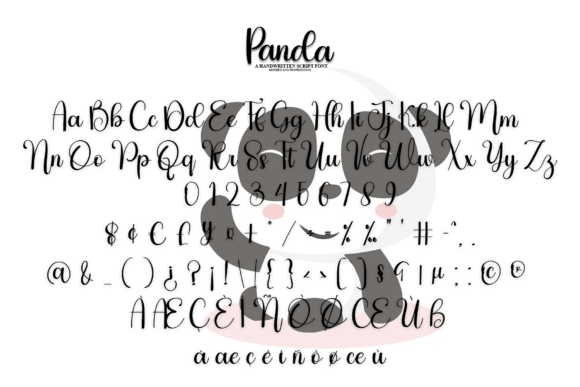 Panda
A HANDWRITTEN SCRIPT FONT
Aa Bb Cc Dd Ee Ff Gg Hh Ii Jj Kk Ll Mm
Nn Oo Pp Qq Rr Ss Tt Uu Vv Ww Xx Yy Zz
0 1 2 3 4 5 6 7 8 9
$ ¢ € £ ¥ ¤ + * / ÷ = % ‰ " ' # - ^ . ,
@ & _ ( ) ¿ ? ¡ ! \ { } ‹ › [ ] § ¶ | µ : ; © ®
À Æ Ç È Ì Ñ Ò Ø Œ Ù ß
à æ ç è ì ñ ò ø œ ù